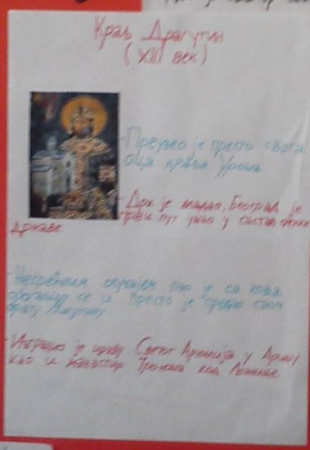 Краљ Драгутин
(XIII век)
- Преузео је престо свога
оца краља Уроша
- Док је владао, Београд је
први пут ушао у састав
државе.
- Несрећним случајем пао је са коња
и престо је предао свом
брату Милутину
- Изградио је цркву Светог Ахилија у Ариљу
као и манастир Троноша код Лознице